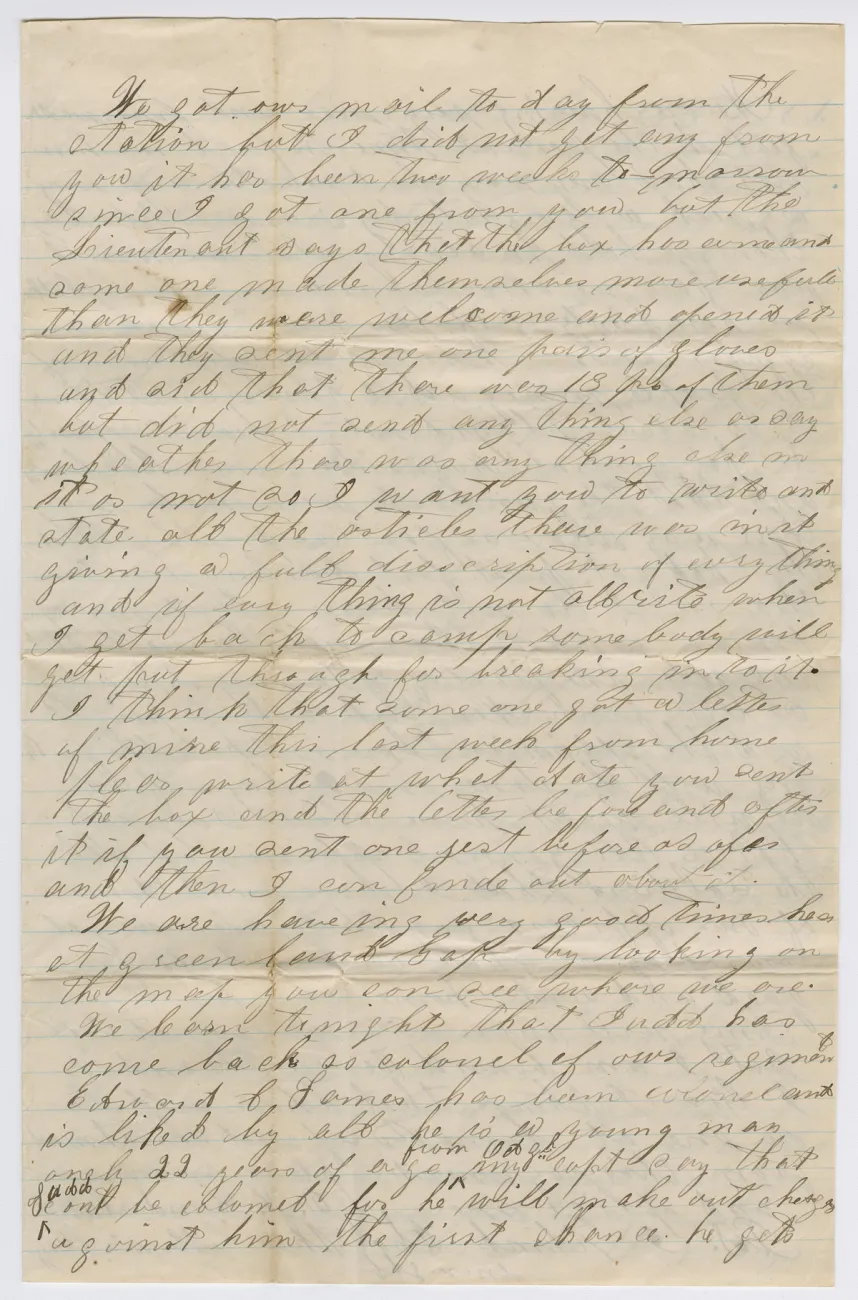 We got our mail to day from the
station but I did not get any from
you it has been two weeks to-morrow
since I got one from you but the
Lieutenant says thet the box has come and
some one made themselves more usefull
than they were welcome and opened it
and they sent me one pair of gloves
and sid that there was 18 pr of them
but did not send any thing else or say
wheather there was any thing else in
it or not so I want you to write and
state all the articles there was in it
giving a full disscription of evry thing
and if evry thing is not allrite when
I get back to camp some body will
get put through for breaking in to it.
I think that some one got a letter
of mine this last week from home
pleas write at what date you sent
the box and the letter before and after
it if you sent one jest before or after
and then I can finde out about it.
We are haveing very good times here
at greenland Gap by looking on
the map you can see where we are.
We learn tonight that Judd has
come back as colonel of our regiment
Edward L James has been colonel and
is liked by all he is a young man
only 22 years of age my capt say that
from Odgs
Judd cont be colonel for he will make out charges
against him the first chance he gets